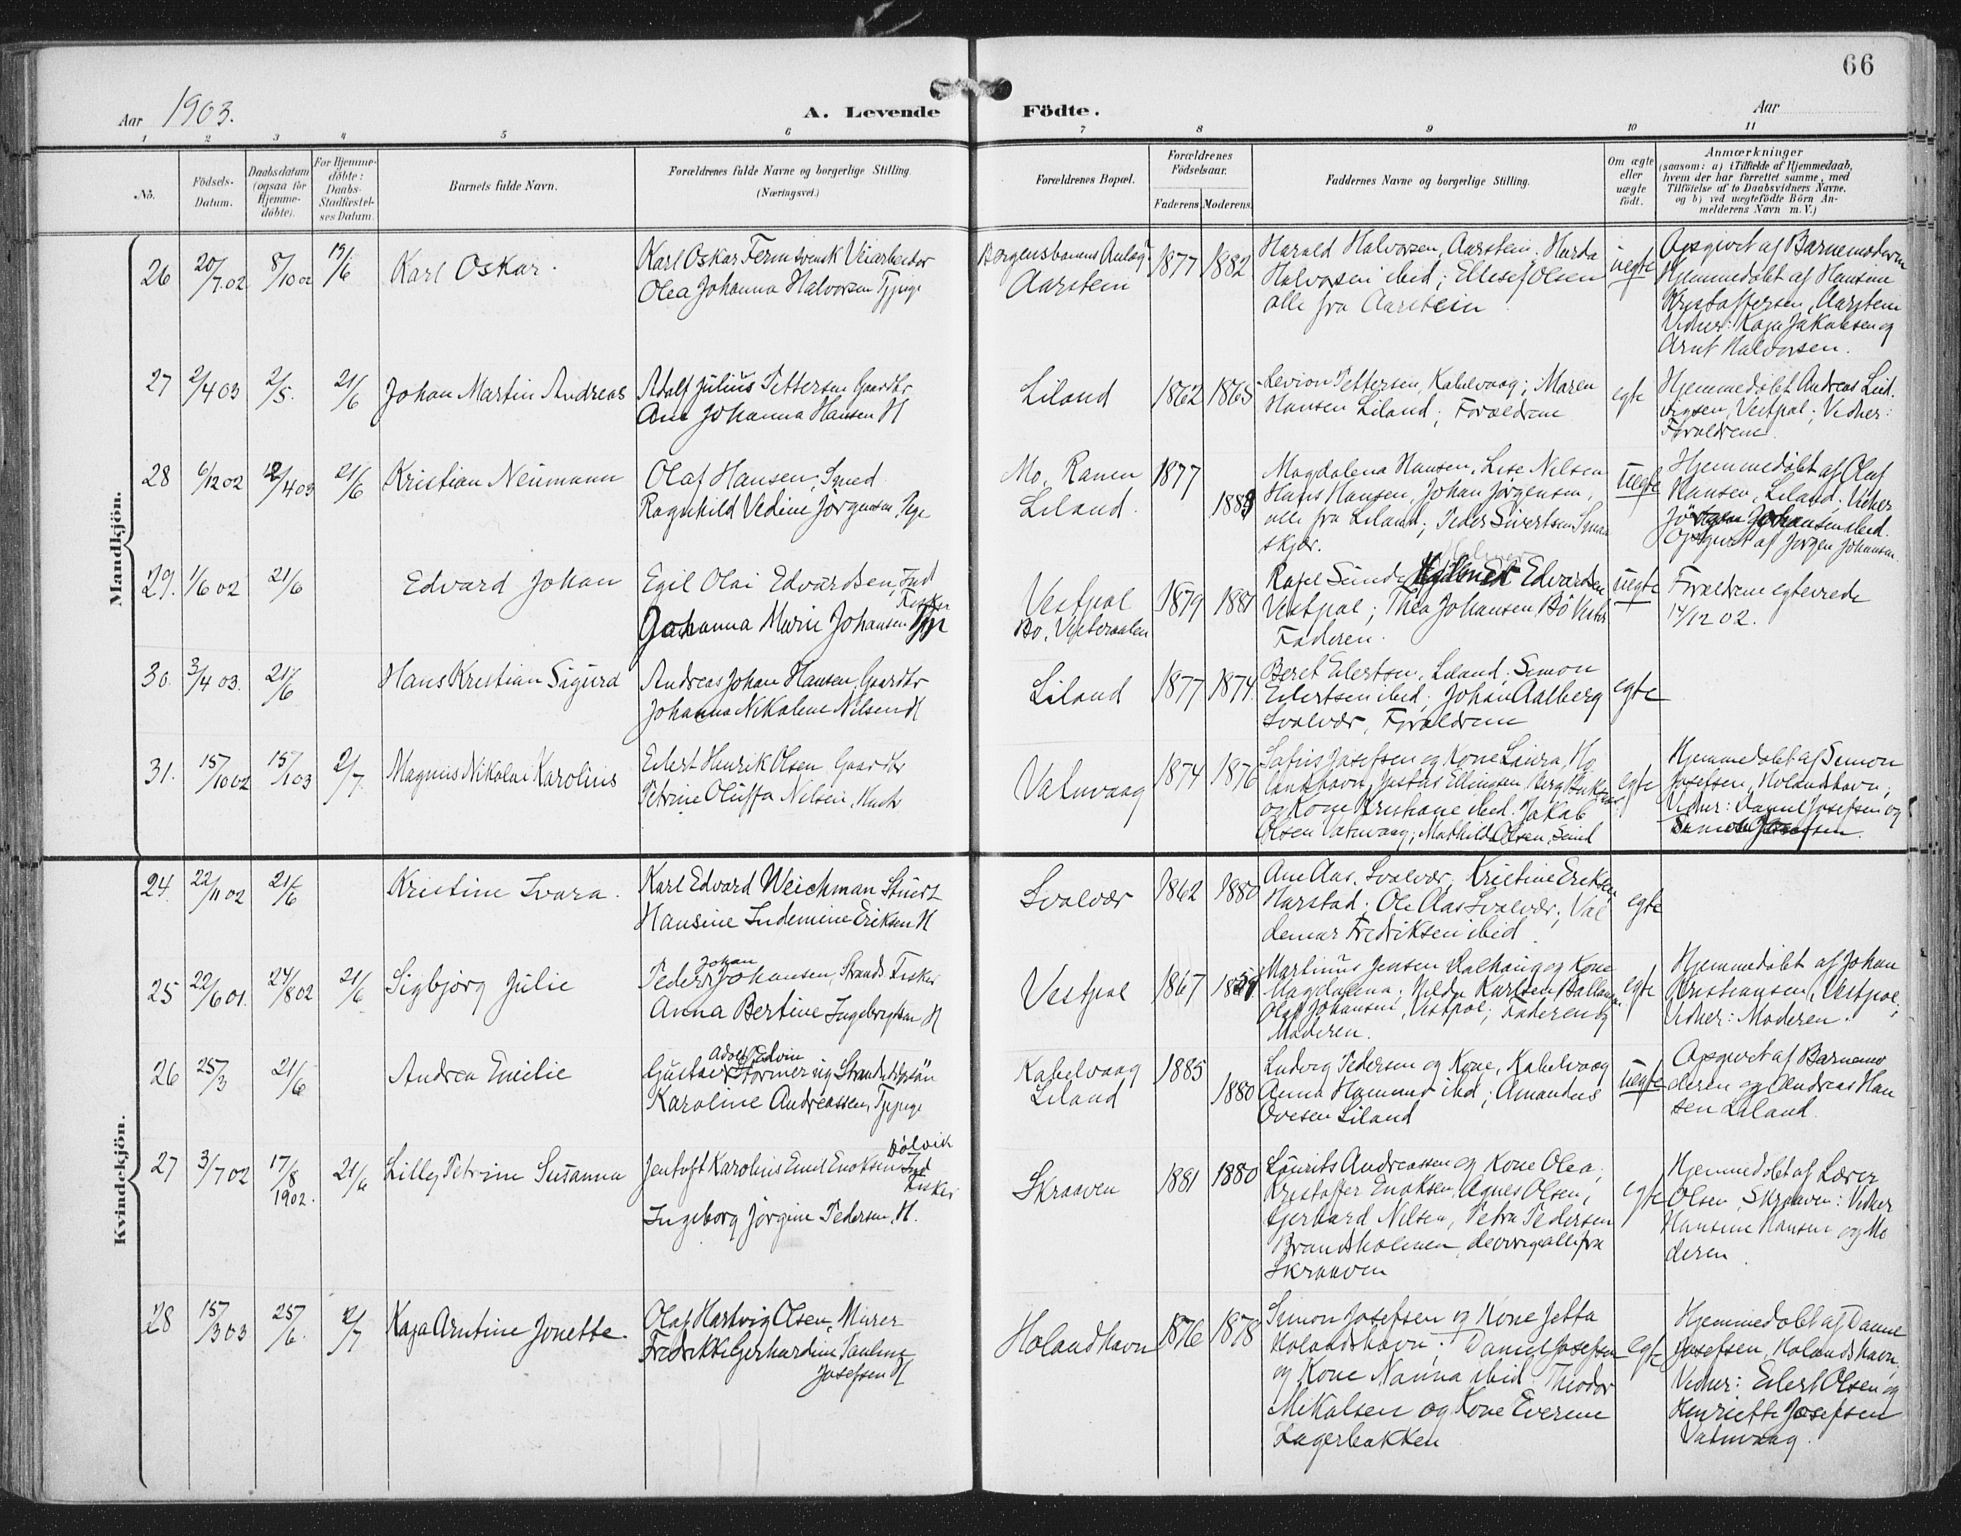 66
Aar 1903.
A. Levende Födte.
Aar
1 2 3 4 5 6 7 8 9 10 11
No.
Födsels-
Datum.
Daabsdatum
(ogsaa for
Hjemme-
döbte).
For Hjemme-
döbte:
Daabs-
Stadfæstel-
ses Datum.
Barnets fulde Navn.
Forældrenes fulde Navne og borgerlige Stilling.
(Næringsvei.)
Forældrenes Bopæl.
Forældrenes
Födselsaar.
Faderens Moderens.
Faddernes Navne og borgerlige Stilling.
Om ægte
eller
uægte
födt.
Anmærkninger
(saasom: a) i Tilfælde af Hjemmedaab,
hvem der har forrettet samme, med
Tilföielse af to Daabsvidners Navne,
og b) ved uægtefödte Börn An-
melderens Navn m. V.)
Mandkjön.
26
20/7 02
8/10 02
Karl Oskar.
Karl Oskar Ferm svensk Veiarbeider
Olea Johanna Halvorsen
Aarstein
1877 1882
Harald Halvorsen, Aarstein,
Halvorsen ibid; Ellef Olsen
alle fra Aarstein
uegte
Opgivet af Barnemoderen
Hjemmedøbt af Hansine
Kristoffersen, Aarstein
Vidner: Kaja Jakobsen og
Arnt Halvorsen.
27
2/4 03
2/5.
21/6
Johan Martin Andreas
Adolf Julius Pettersen Gaardbr
Ane Johanna Hansen H
Liland
1862 1865
Pettersen, Kabelvaag; Maren
Hansen Liland; Forældrene
egte
Hjemmedøbt Andreas Lud
vigsen, Vestpol; Vidner:
Forældrene
28
6/12 02
21/6
Kristian Neumann
Olaf Hansen, Smed
Ragnhild Vedine Jørgensen Pige
Mo, Ranen
Liland.
1877
Magdalena Hansen, Lise Nilsen
Hans Hansen, Johan Jørgensen,
alle fra Liland; Peder Sivertsen
skjær.
uegte
Hjemmedøbt af Olaf
Hansen, Liland; Vidner
Johansen ibid.
Opgivet af Jørgen Johansen
29.
1/6 02
21/6
Edvard Johan
Egil Olai Edvardsen, Ind
Fisker
Johanna Marie Johansen
Vestpol
Bø, Vesteraalen
1879 1881
Edvardsen
Vestpol; Thea Johansen Bø
Faderen.
uegte
Forældrene egteviede
14/12 02.
30.
3/4 03.
21/6
Hans Kristian Sigurd
Andreas Johan Hansen, Gaardbr
Johanna Nikoline Nilsen H
Liland
1877 1874.
Beret Eilertsen, Liland; Simon
Eilertsen ibid; Johan Aalberg
Svolvær, Forældrene
egte
31.
15/10 02
15/1 03
2/7
Magnus Nikolai Karolius
Eilert Henrik Olsen, Gaardbr
Petrine Oluffa Nilsen,
Vatnvaag
1874 1876
Josefsen og Kone Laura, Ho
landshavn, Justus Ellingsen,
og Kone Kristiane ibid. Jakob
Olsen Vatnvaag; Mathilde Olsen,
egte
Hjemmedøbt af Simon
Josefsen, Holandshavn;
Vidner: Daniel Josefsen og
Josefsen.
Kvindekjön.
24.
22/11 02
21/6
Kristine Svara.
Karl Edvard Weichman
Hansine Indemine Eriksen H
Svolvær
1862 1880
Ane Aas, Svolvær, Kristine Eriksen
Harstad; Ole Aas Svolvær; Val
demar Fredriksen ibid
egte
25
22/6 01.
24/8 02
21/6
Sigbjørg Julie
Johan
Peder Johansen, Strands. Fisker
Anna Bertine Ingebrigtsen H
Vestpol
1867
Martinus Jensen Kalhaug og Kone
Magdalena; Hilda Karlsen
Olaf Johansen, Vestpol; Faderen og
Moderen.
egte
Hjemmedøbt af Johan
Kristiansen, Vestpol;
Vidner: Moderen.
26
25/3
21/6
Andrea Emilie
Adolf Edvin
Gustav
Karoline Andreassen,
Kabelvaag
Liland
1885
1880
Ludvig Pedersen og Kone, Kabelvaag
Anna Hammer ibid; Amandus
Ovesen Liland
uegte
Opgivet af Barnemo
deren og Andreas Han
sen Liland.
27
3/7 02
17/8
1902.
21/6
Lilly Petrine Susanna
Jentoft Karolius Emil Enoksen Ind
Fisker
Ingeborg Jørgine Pedersen, H.
Skraaven
1881 1880
Laurits Andreassen og Kone Olea;
Kristoffer Enoksen, Agnes Olsen,
Gerhard Nilsen, Petra Pedersen
Brandsholmen, de øvrige alle fra
Skraaven
egte
Hjemmedøbt af Lærer
Olsen, Skraaven: Vidner
Hansine Hansen og Mo
deren
28
15/3 03
25/6.
2/7
Kaja Arntine Jonette.
Olaf Hartvig Olsen, Murer
Fredrikke Gerhardine Pauline
Josefsen H
Holandhavn
1876 1878
Simon Josefsen og Kone Jetta
Holandshavn; Daniel Josefsen
og Kone Nanna ibid; Theodor
Mikalsen og Kone Everine
Lagerbakken
egte
Hjemmedøbt af Daniel
Josefsen, Holandshavn
Vidner: Eilert Olsen og
Henriette Josefsen
Vatnvaag.